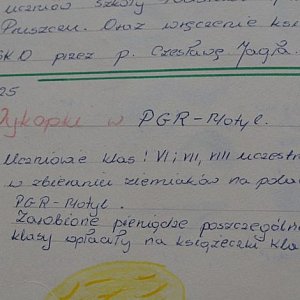 uczniów szkoły
Pruszcza. Oraz wręczenie ksi
SKO przez p. Czesławę Jagła.
25
Wykopki w PGR-Motyl.
Uczniowie klas V i VII, VIII uczestn
w zbieraniu ziemniaków na pola
PGR-Motyl.
Zarobione pieniądze poszczególn
klasy opłacały na książeczki kla